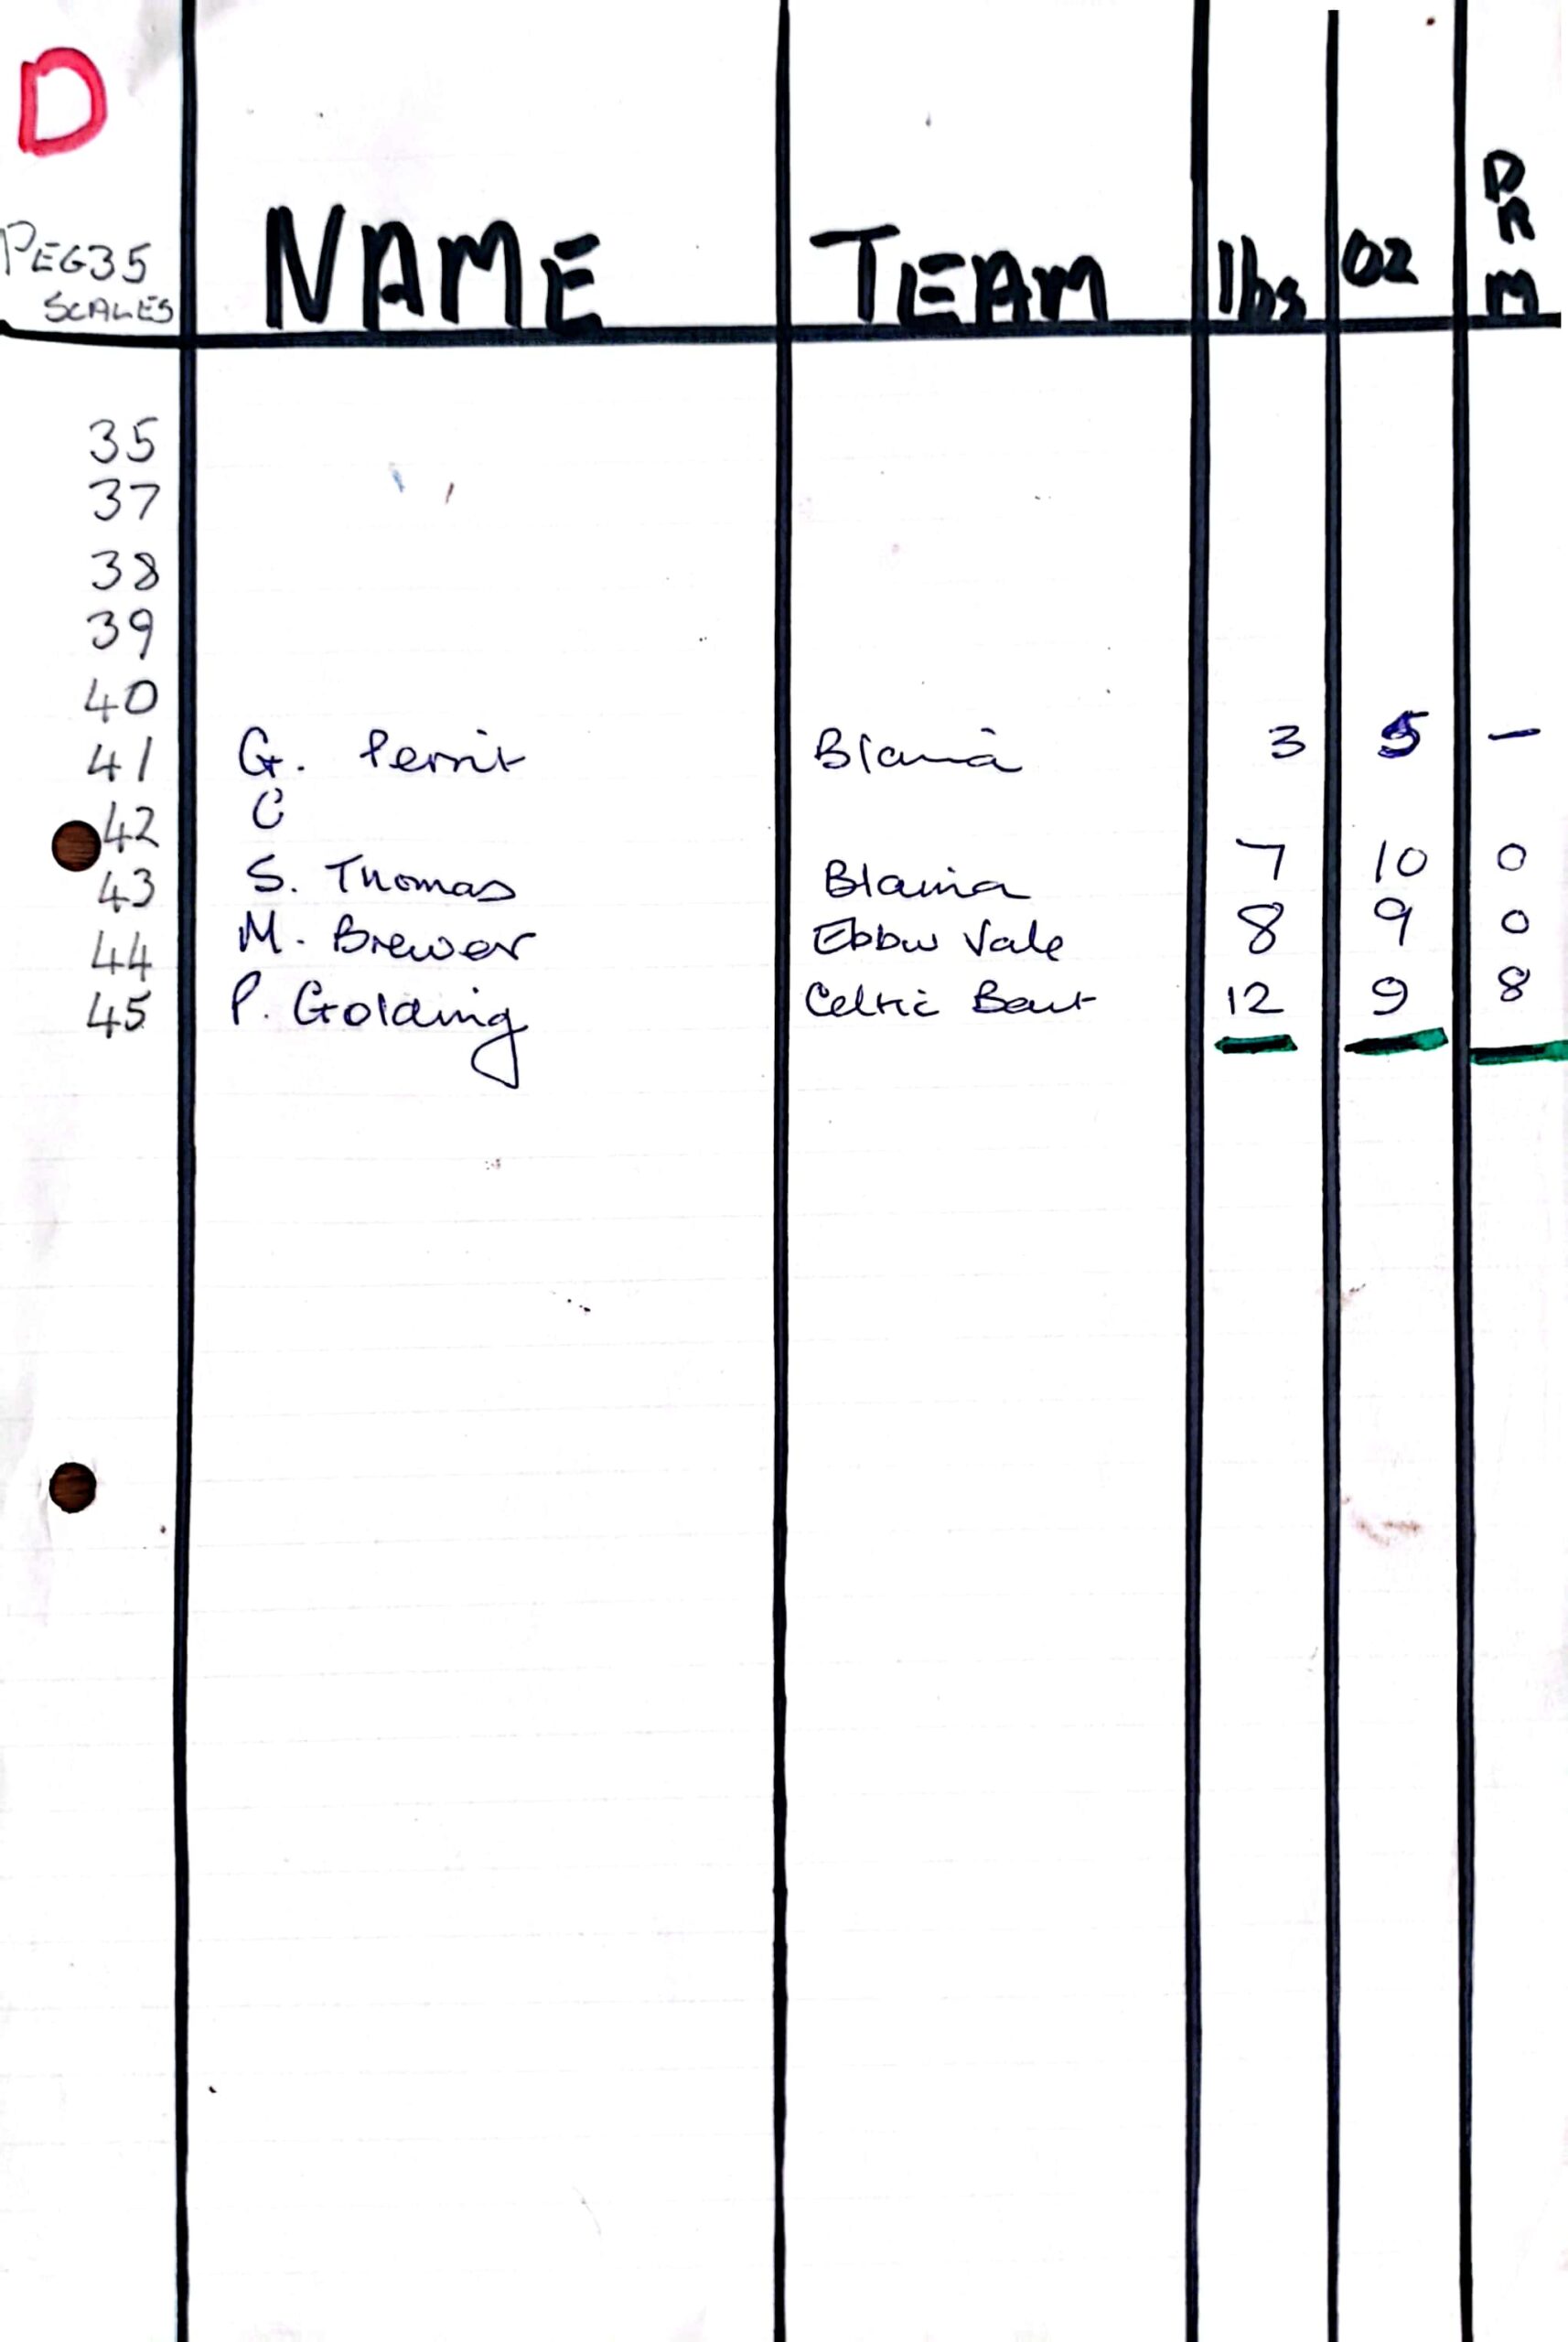 D
PEG35 NAME TEAM lbs oz DRM
SCALES
35
37
38
39
40
41 G. Perrit Blaina 3 5 –
42 C
43 S. Thomas Blaina 7 10 0
44 M. Brewer Ebbw Vale 8 9 0
45 P. Golding Celtic 12 9 8